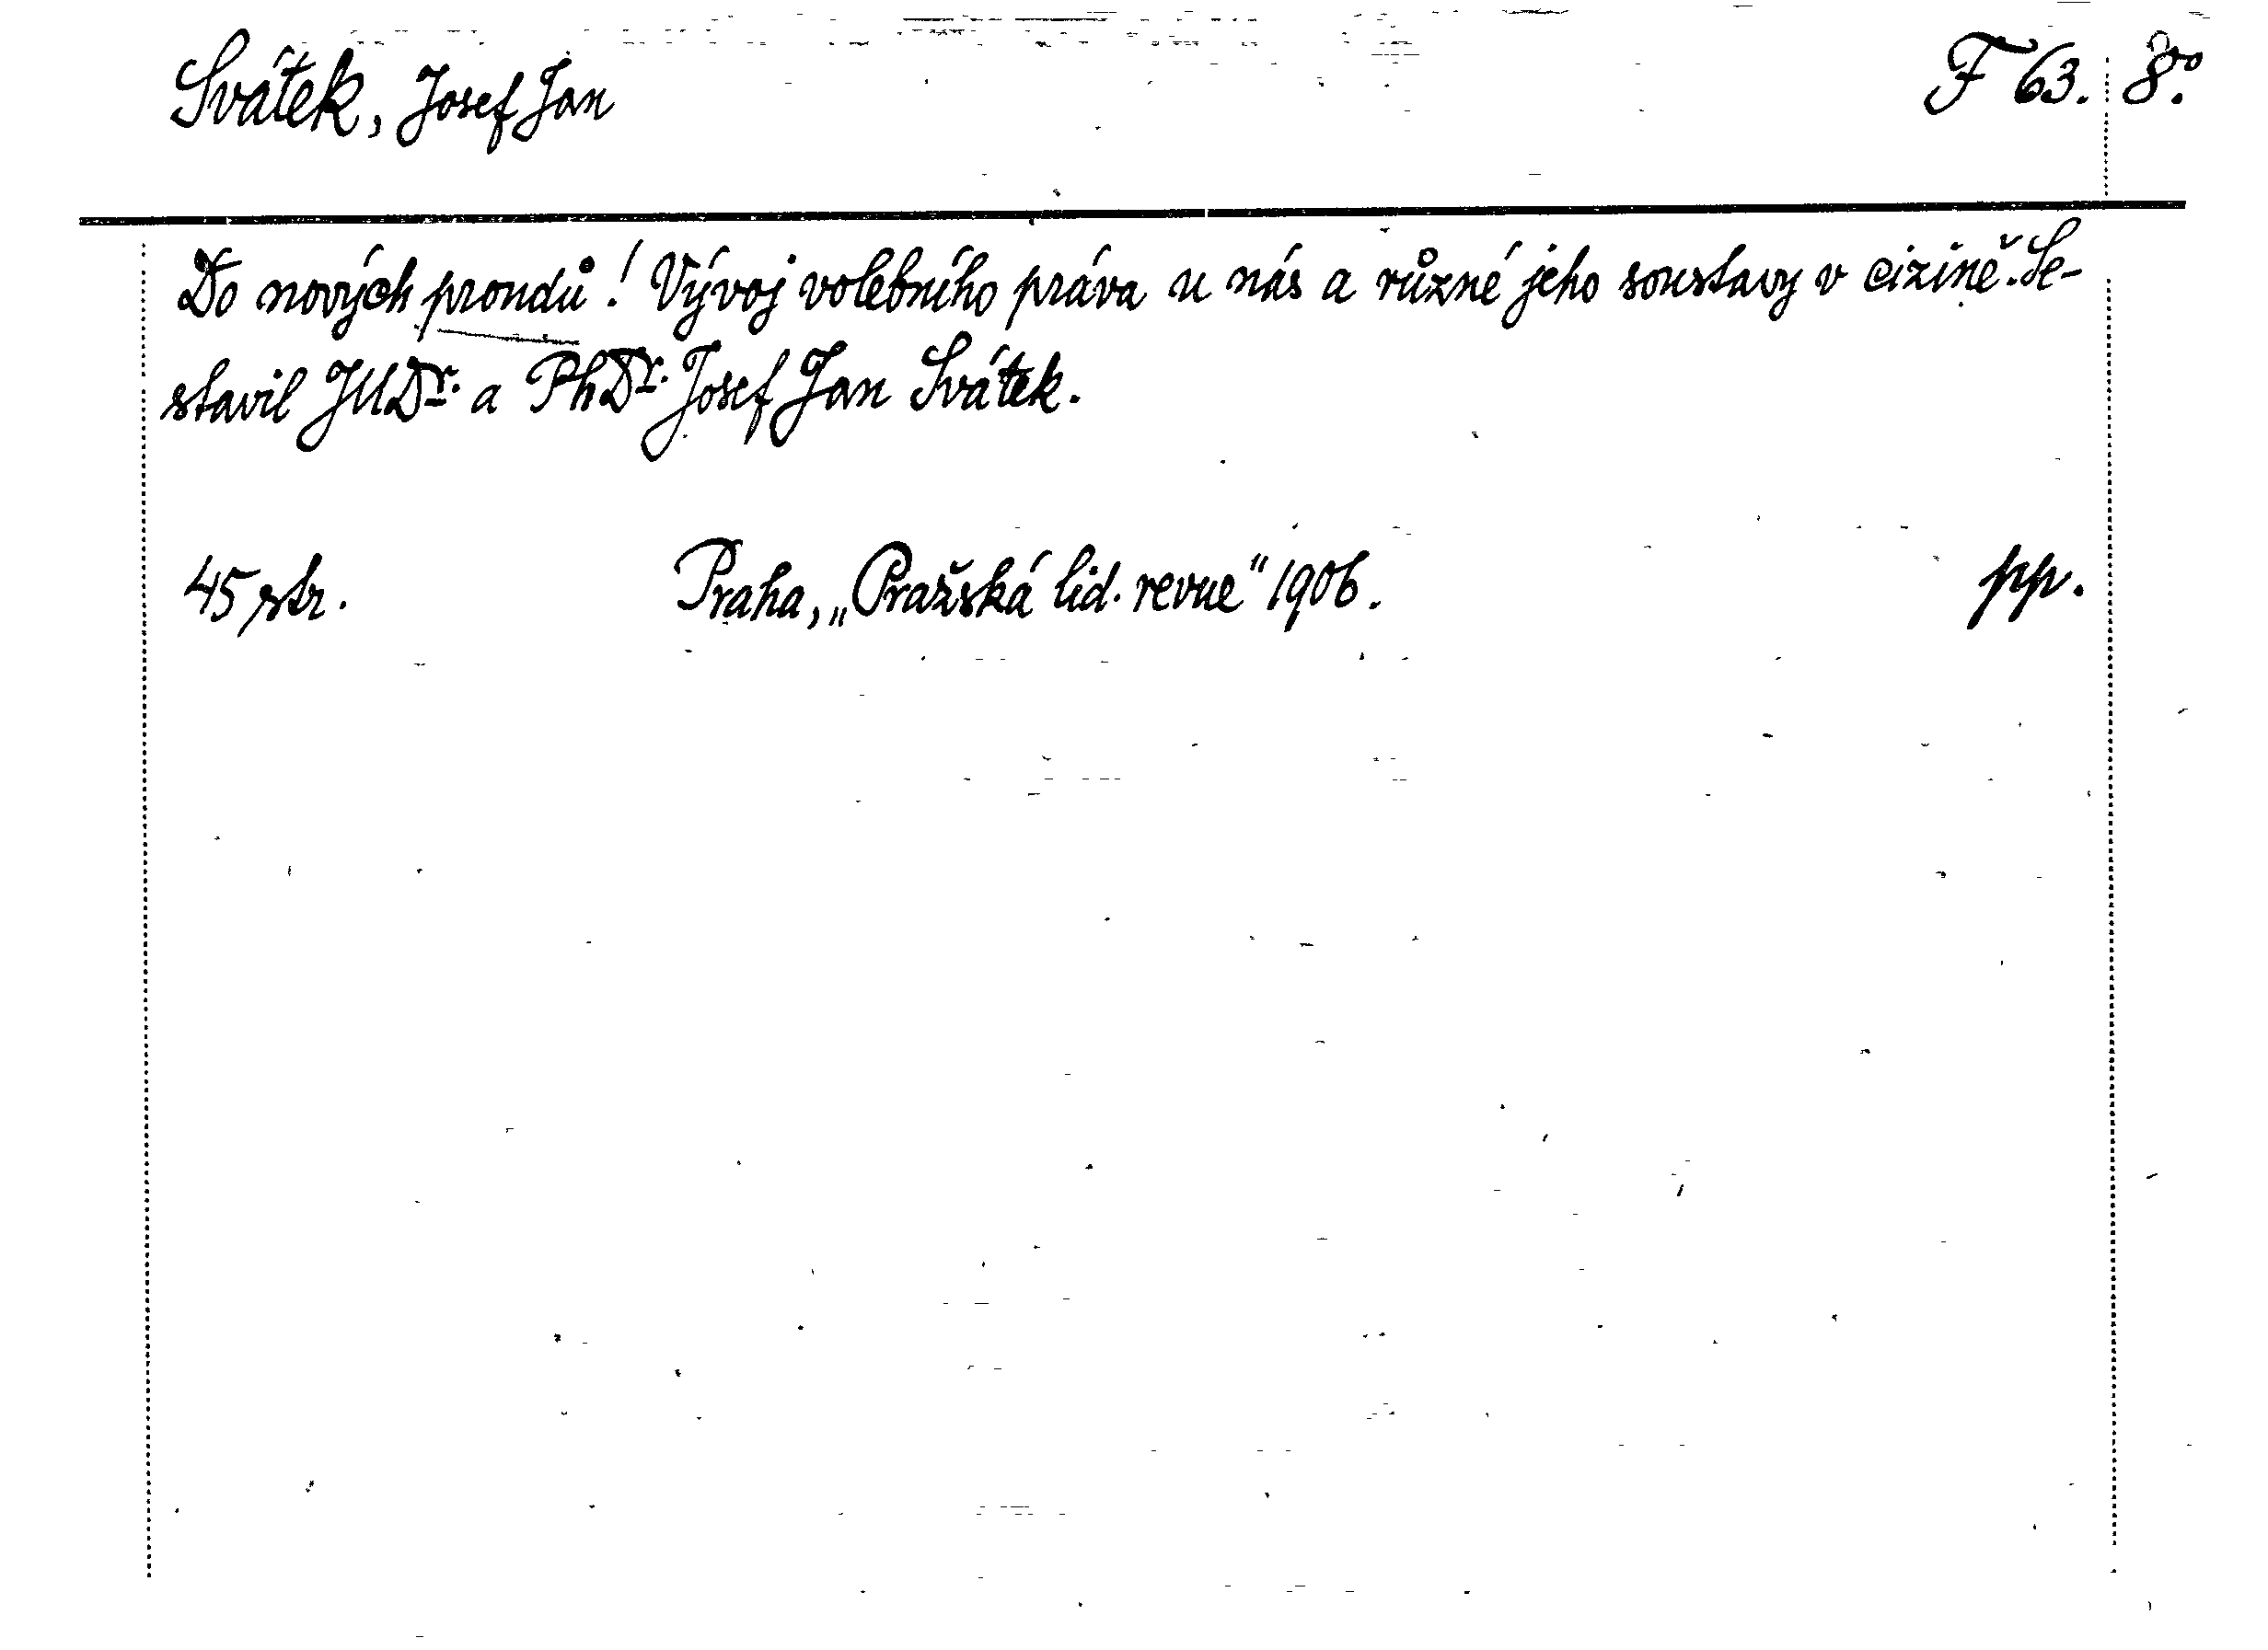 Svátek, Josef Jan F 63. 8°.
Do nových proudů! Vývoj volebního práva u nás a různé jeho soustavy v cizině. Se-
stavil JUDr. a PhDr. Josef Jan Svátek.
45 str. Praha, „Pražská lid. revue“ 1906. pp.